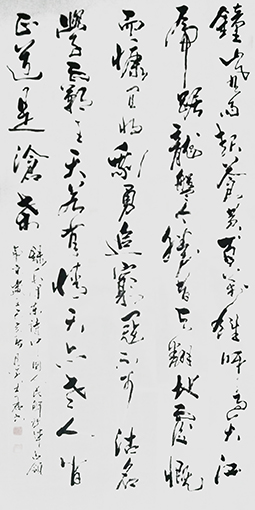 鐘山風雨起蒼黃百萬雄師過大江
虎踞龍盤今勝昔天翻地覆慨
而慷宜將剩勇追窮寇不可沽名
學霸王天若有情天亦老人間
正道是滄桑
錄毛澤東詩人民解放軍占領
南京